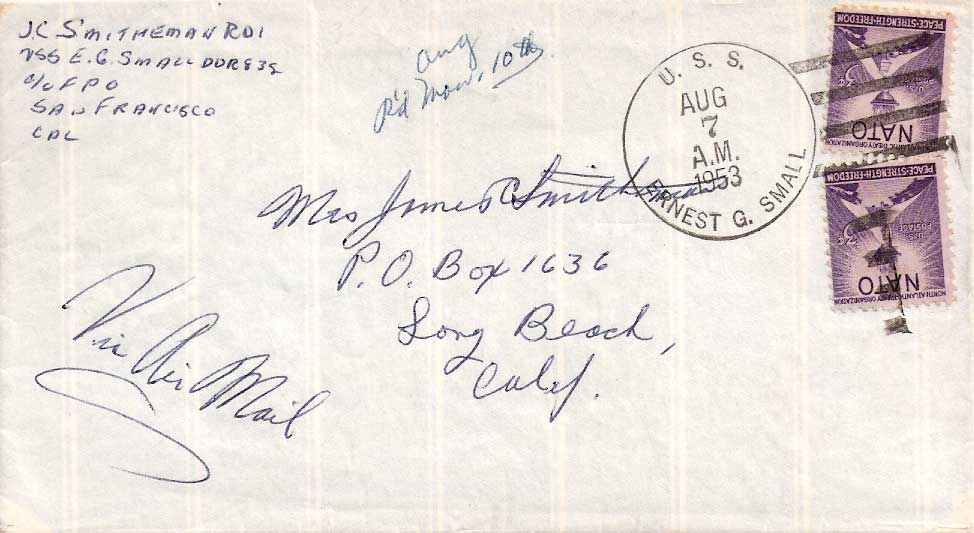 J.C SMITHEMAN RD1
USS E.G. SMALL DDR 838
c/o FPO
SAN FRANCISCO
CAL
Aug
R'd Mon, 10th
U. S. S.
AUG
7
A.M.
1953
ERNEST G. SMALL
PEACE-STRENGTH-FREEDOM
3¢
U.S. POSTAGE
NATO
NORTH ATLANTIC TREATY ORGANIZATION
PEACE-STRENGTH-FREEDOM
3¢
U.S. POSTAGE
NATO
NORTH ATLANTIC TREATY ORGANIZATION
Mrs James C Smitheman
P.O. Box 1636
Long Beach,
Calif.
Via Air Mail